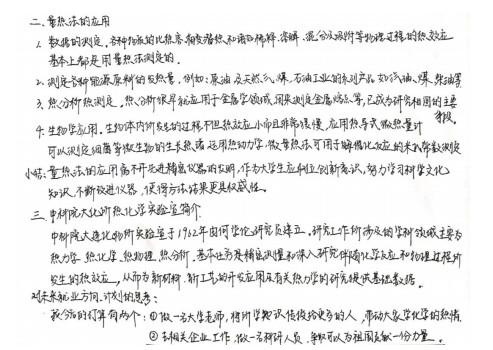 二、量热法的应用
1. 数据的测定。各种物质的比热容、相变潜热和诸如稀释、溶解、混合及吸附等物理过程的热效应
基本上都是用量热法测定的。
2. 测定各种能源原料的发热量。例如：原油及天然气、煤、石油工业的系列产品如汽油、煤、柴油等
3. 热分析热测定。热分析很早就应用于金属学领域，用来测定金属熔点等，已成为研究相图的主要手段。
4. 生物学应用。生物体内所发生的过程不但热效应小而且非常缓慢，应用热导式微热量计
可以测定细菌等微生物的生长热，运用热动力学，微量热法可用于解催化反应的米氏常数测定
小结：量热法的应用离不开先进精密仪器的发明，作为大学生应树立创新意识，努力学习科学文化
知识，不断改进仪器，使得方法结果更具权威性。
三、中科院大化所热化学实验室简介
中科院大连化物所实验室于1962年由何学伦研究员建立。研究工作所涉及的学科领域主要为
热力学、热化学、热物理、热分析，基本任务是精密测量和深入研究伴随化学反应和物理过程所
发生的热效应，从而为新材料、新工艺的开发应用及有关热力学的研究提供基础数据。
对未来就业方向、计划的思考：
我今后的打算有两个：① 做一名大学老师，将所学知识传授给更多的人，带动大家学化学的热情
② 去相关企业工作，做一名科研人员，争取可以为祖国贡献一份力量。